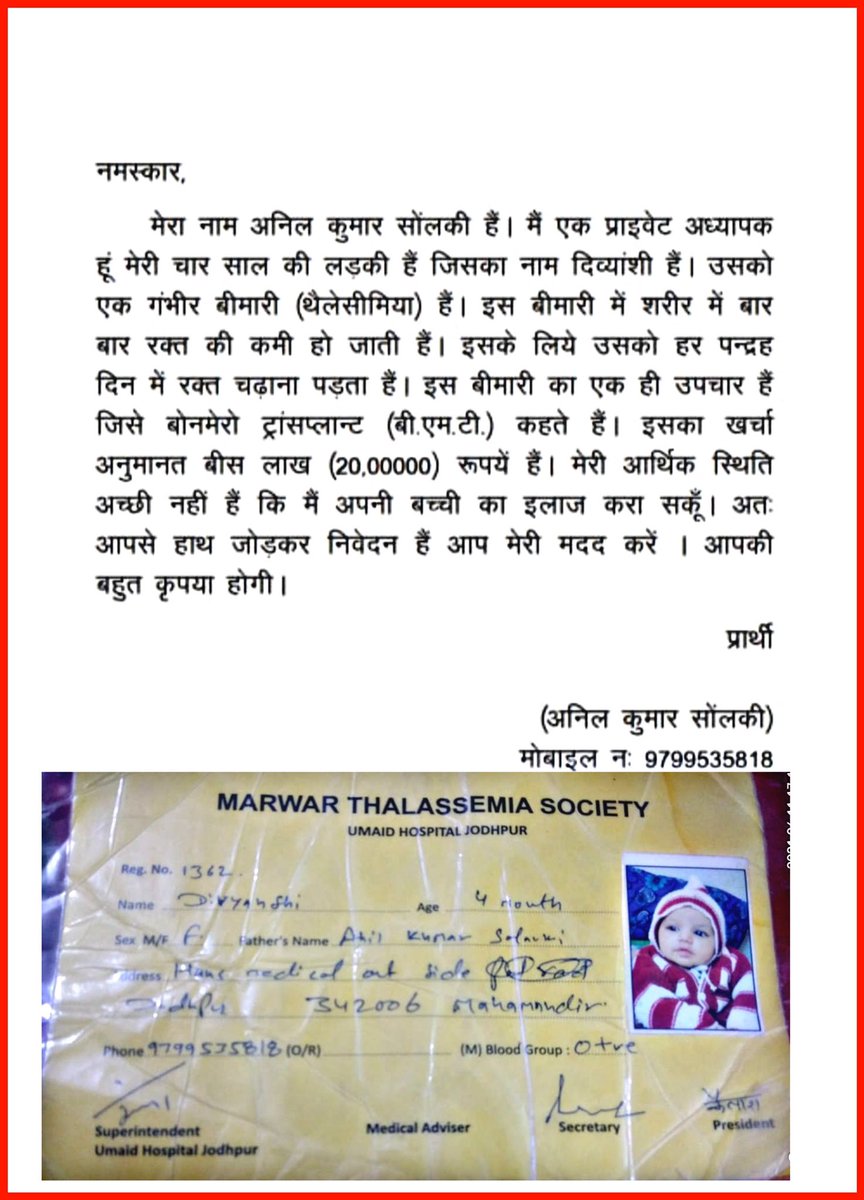 नमस्कार,
मेरा नाम अनिल कुमार सोंलकी हैं। मैं एक प्राइवेट अध्यापक
हूं मेरी चार साल की लड़की हैं जिसका नाम दिव्यांशी हैं। उसको
एक गंभीर बीमारी (थैलेसीमिया) हैं। इस बीमारी में शरीर में बार
बार रक्त की कमी हो जाती हैं। इसके लिये उसको हर पन्द्रह
दिन में रक्त चढ़ाना पड़ता हैं। इस बीमारी का एक ही उपचार हैं
जिसे बोनमेरो ट्रांसप्लान्ट (बी.एम.टी.) कहते हैं। इसका खर्चा
अनुमानत बीस लाख (20,00000) रूपयें हैं। मेरी आर्थिक स्थिति
अच्छी नहीं हैं कि मैं अपनी बच्ची का इलाज करा सकूँ। अतः
आपसे हाथ जोड़कर निवेदन हैं आप मेरी मदद करें । आपकी
बहुत कृपया होगी।
प्रार्थी
(अनिल कुमार सोंलकी)
मोबाइल नः 9799535818
MARWAR THALASSEMIA SOCIETY
UMAID HOSPITAL JODHPUR
Reg. No. 1362.
Name Divyanshi Age 4 month
Sex M/F F. Father's Name Anil Kumar Solanki
Address Hans medical out side
342006 Mahamandir.
Phone 9799535818 (O/R) (M) Blood Group : O+ve
Superintendent Medical Adviser Secretary President
Umaid Hospital Jodhpur
कैलाश